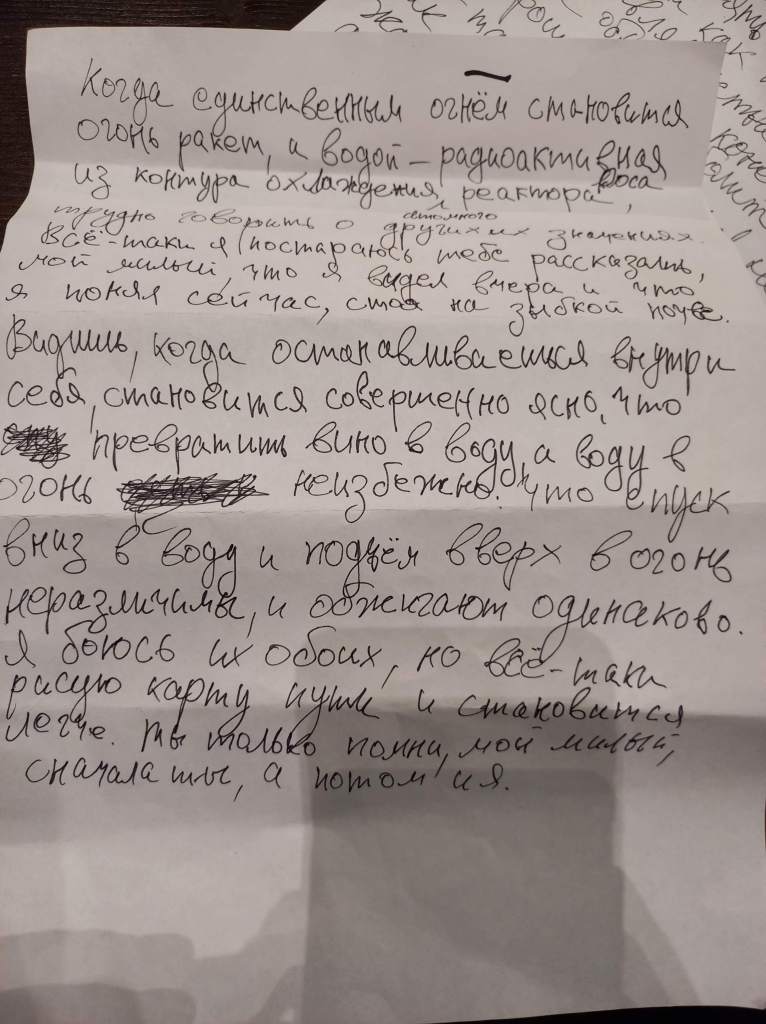 Когда единственным огнём становится
огонь ракет, а водой – радиоактивная
роса
из контура охлаждения реактора,
атомного
трудно говорить о других их значениях.
Всё-таки я постараюсь тебе рассказать,
мой милый, что я видел вчера и что
я понял сейчас, стоя на зыбкой почве.
Видишь, когда останавливаешься внутри
себя, становится совершенно ясно, что
превратить вино в воду, а воду в
огонь неизбежно. Что спуск
вниз в воду и подъём вверх в огонь
неразличимы, и обжигают одинаково.
Я боюсь их обоих, но всё-таки
рисую карту пути и становится
легче. Ты только помни, мой милый,
сначала ты, а потом и я.